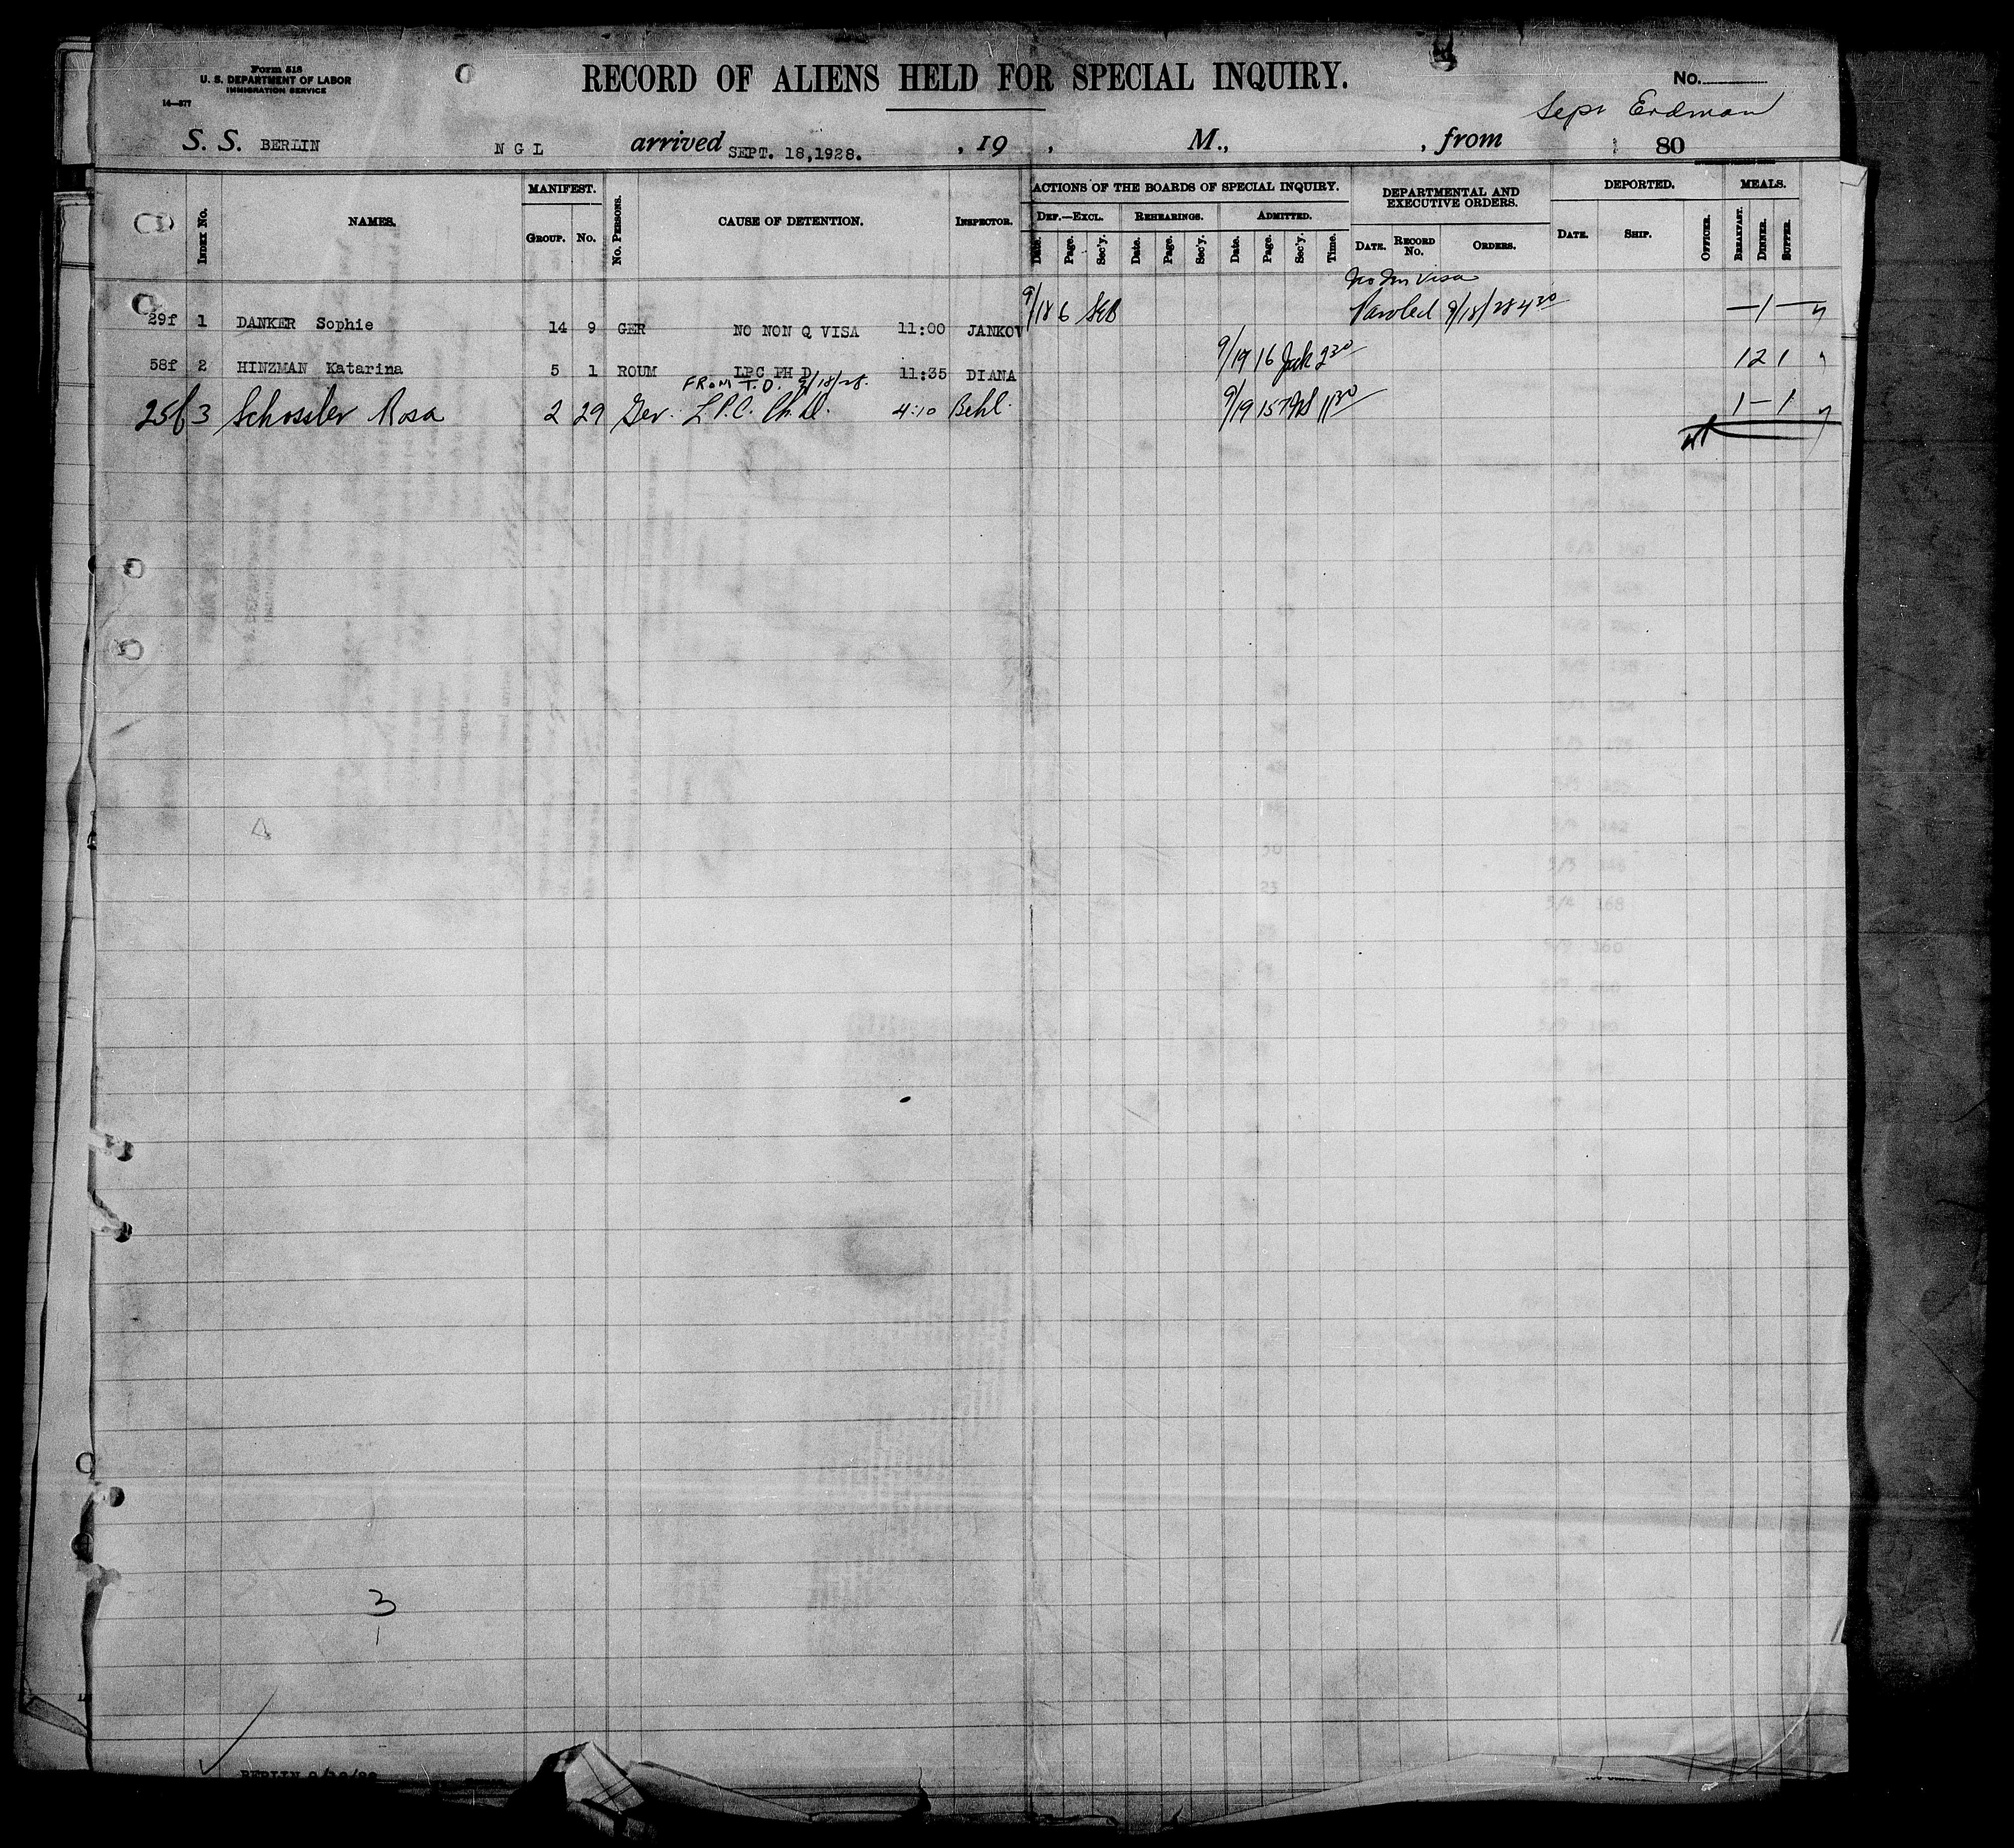 Form 518
U. S. DEPARTMENT OF LABOR
IMMIGRATION SERVICE
14—577
RECORD OF ALIENS HELD FOR SPECIAL INQUIRY.
No.
Erdman
S. S. BERLIN N G L arrived SEPT. 18,1928. , 19 , M., , from 80
INDEX No. NAMES. MANIFEST. GROUP. No. No. PERSONS. CAUSE OF DETENTION. INSPECTOR. ACTIONS OF THE BOARDS OF SPECIAL INQUIRY. DEPARTMENTAL AND EXECUTIVE ORDERS. DEPORTED. MEALS.
DEF.—EXCL. REHEARINGS. ADMITTED.
Date. Page. Sec'y. Date. Page. Sec'y. Date. Page. Sec'y. Time. DATE. RECORD No. ORDERS. DATE. SHIP. OFFICER. BREAKFAST. DINNER. SUPPER.
Visa
29f 1 DANKER Sophie 14 9 GER NO NON Q VISA 11:00 JANKOV 9/18 6 Paroled 9/18/28 4 30 — 1 —
58f 2 HINZMAN Katarina 5 1 ROUM LPC PH D 11:35 DIANA 9/19 16 2 30 1 2 1
FROM T.D. 9/18/28.
25f 3 Schossler Rosa 2 29 Ger. L.P.C. Ph.D. 4:10 Behl. 9/19 11 30 1 — 1
3
1